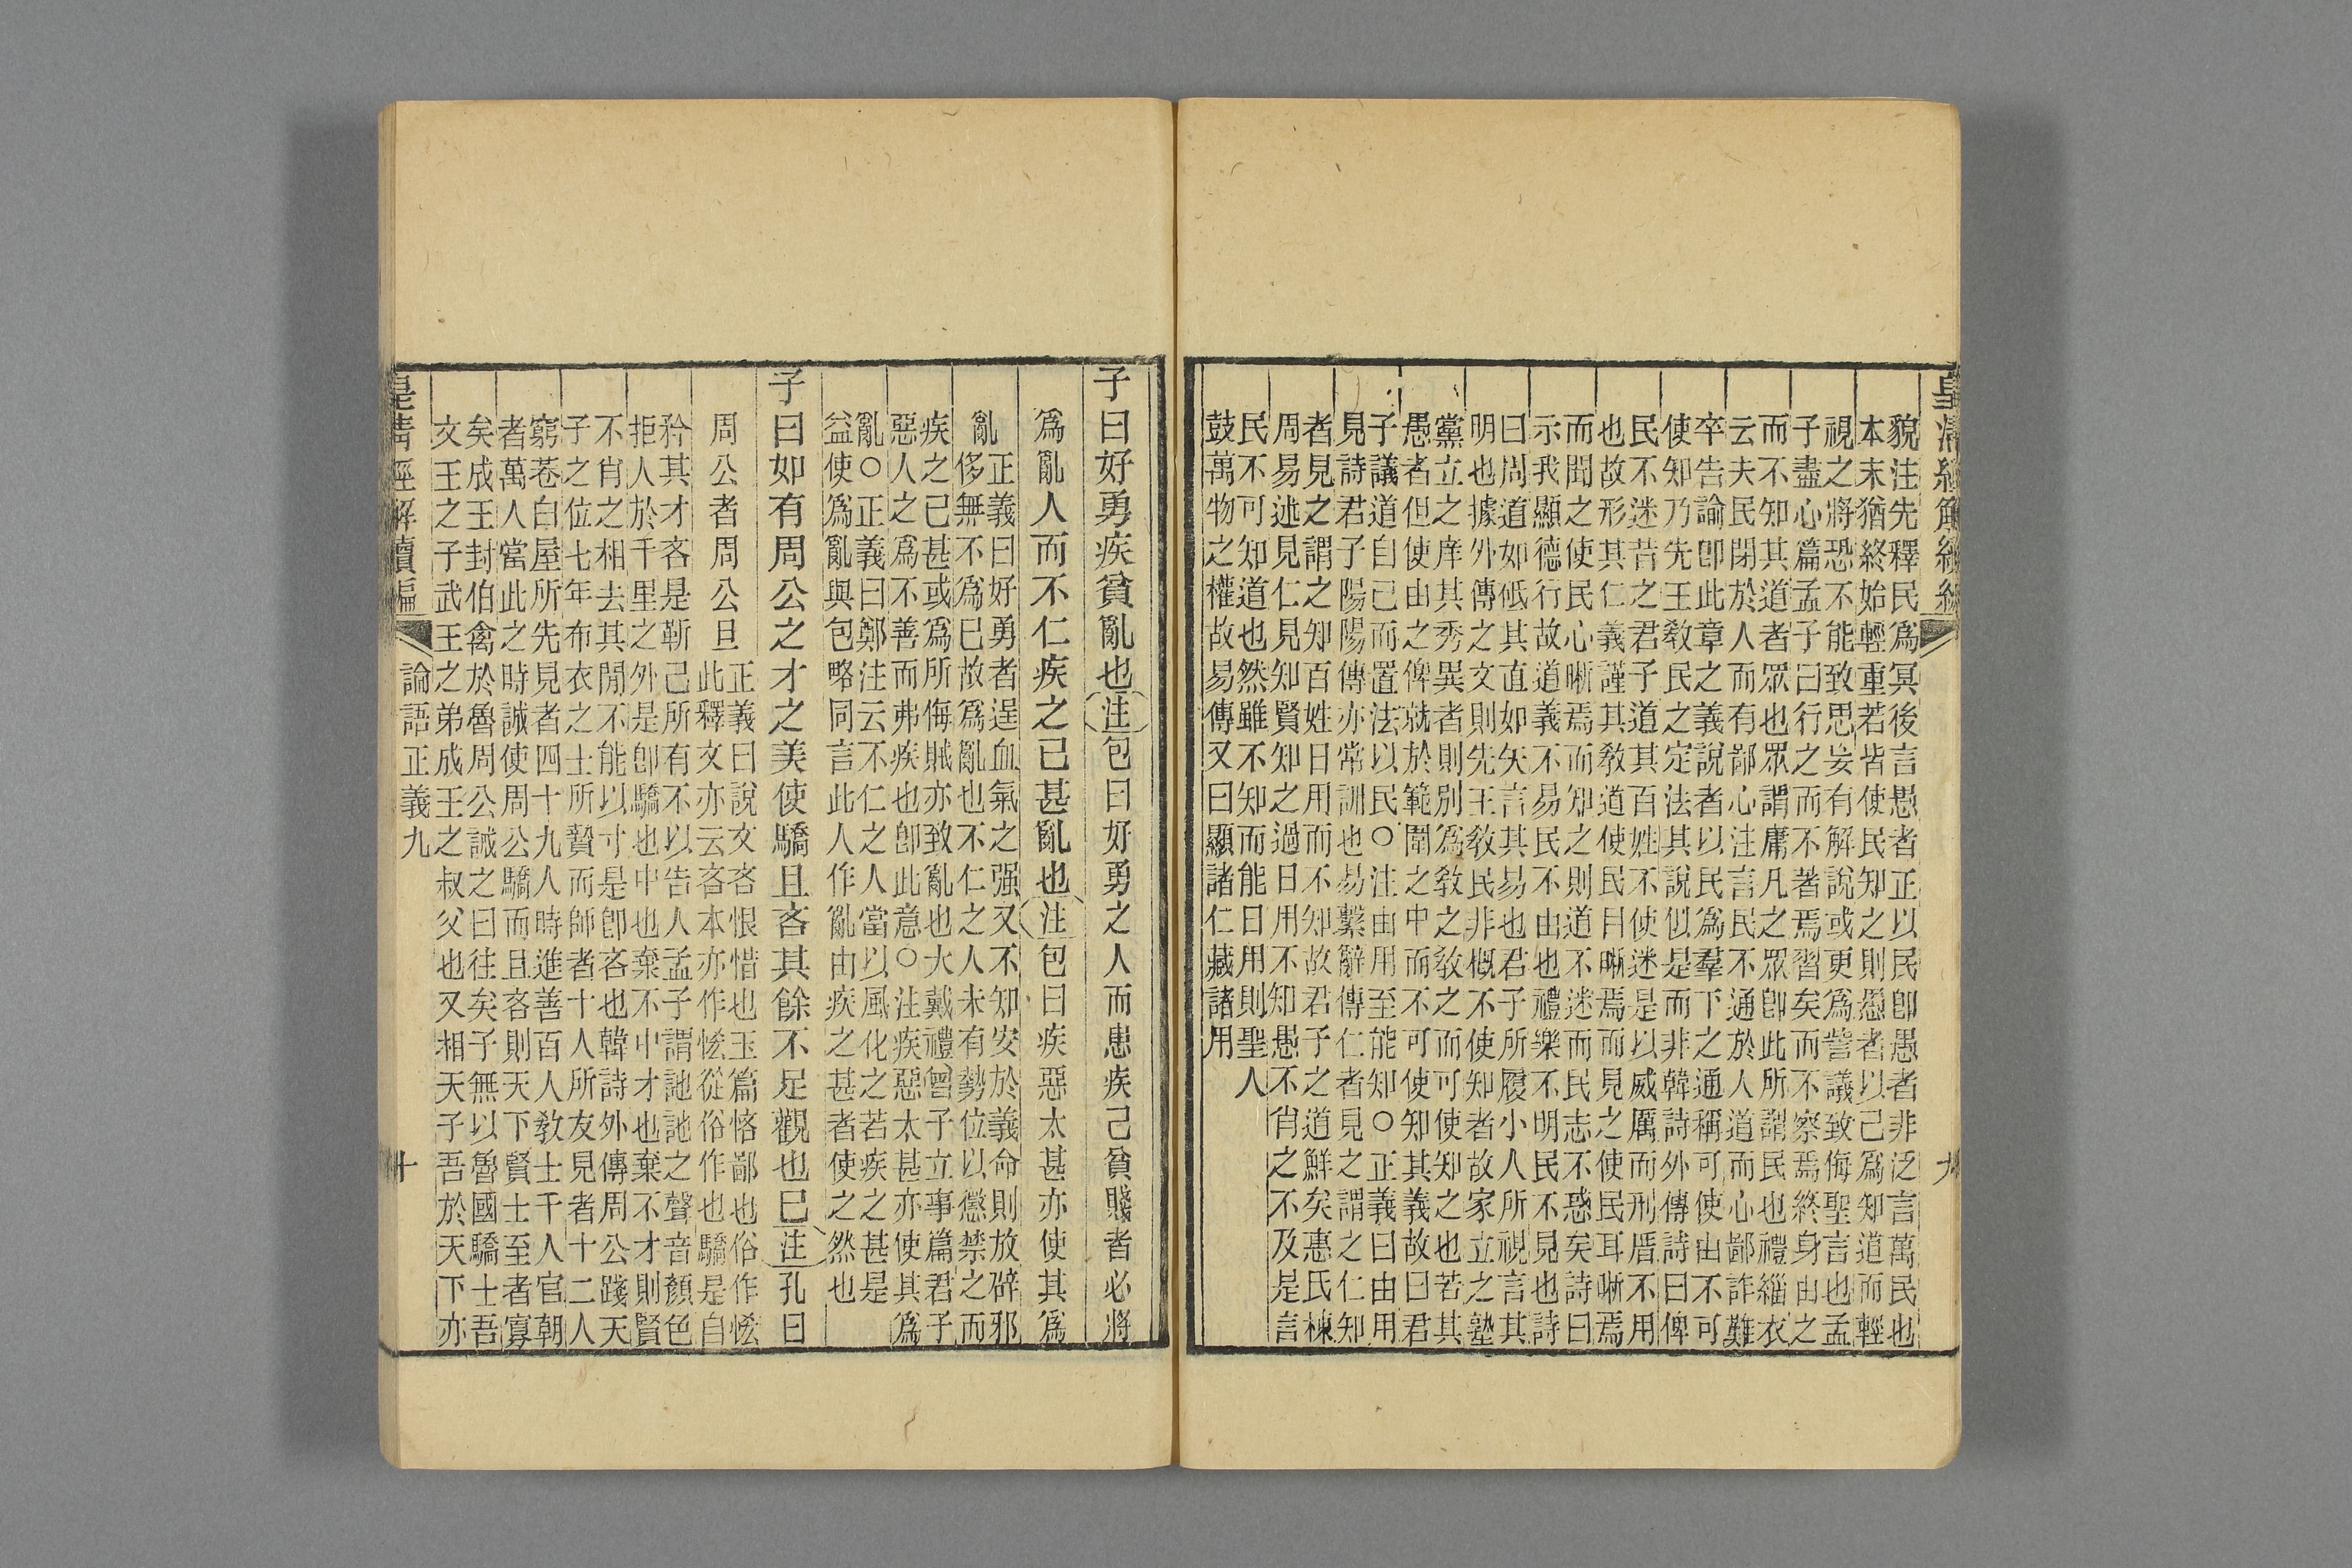 皇清經解續編 九
貌注先釋民爲冥後言愚者正以民卽愚者非泛言萬民也
本末猶終始輕重若皆使民知之則愚者以己爲知道而輕
視之將恐不能致思妄有解說或更爲訾議致侮聖言也孟
子盡心篇孟子曰行之而不著焉習矣而不察焉終身由之
而不知其道者眾也眾謂庸凡之眾卽此所謂民也禮緇衣
云夫民閉於人而有鄙心注言民不通於人道而心鄙詐難
卒告諭卽此章之義說者以民爲羣下之通稱可使由不可
使知乃先王敎民之定法其說似是而非韓詩外傳詩曰俾
民不迷昔之君子道其百姓不使迷是以威厲而刑厝不用
也故形其仁義謹其敎道使民目晰焉而見之使民耳晰焉
而聞之使民心晰焉而知之則道不迷而民志不惑矣詩曰
示我顯德行故道義不易民不由也禮樂不明民不見也詩
曰周道如砥其直如矢言其易也君子所履小人所視言其
明也據外傳之文則先王敎民非概不使知者故家立之塾
黨立之庠其秀異者則別爲敎之敎之而可使知之也若其
愚者但使由之俾就於範圍之中而不可使知其義故曰君
子議道自己而置法以民○注由用至能知○正義曰由用
見詩君子陽陽傳亦常訓也易繫辭傳仁者見之謂之仁知
者見之謂之知百姓日用而不知故君子之道鮮矣惠氏棟
周易述見仁見知賢知之過日用不知愚不肖之不及是言
民不可知道也然雖不知而能日用則聖人
鼓萬物之權故易傳又曰顯諸仁藏諸用
子曰好勇疾貧亂也注包曰好勇之人而患疾己貧賤者必將
爲亂人而不仁疾之已甚亂也注包曰疾惡太甚亦使其爲
亂
正義曰好勇者逞血氣之强又不知安於義命則放辟邪
侈無不爲已故爲亂也不仁之人未有勢位以懲禁之而
疾之已甚或爲所侮賊亦致亂也大戴禮曾子立事篇君子
惡人之爲不善而弗疾也卽此意○注疾惡太甚亦使其爲
亂○正義曰鄭注云不仁之人當以風化之若疾之甚是
益使爲亂與包略同言此人作亂由疾之甚者使之然也
子曰如有周公之才之美使驕且吝其餘不足觀也已注孔曰
周公者周公旦
正義曰說文吝恨惜也玉篇悋鄙也俗作恡
此釋文亦云吝本亦作恡從俗作也驕是自
矜其才吝是靳己所有不以告人孟子謂訑訑之聲音顏色
拒人於千里之外是卽驕也中也棄不中才也棄不才則賢
不肖之相去其閒不能以寸是卽吝也韓詩外傳周公踐天
子之位七年布衣之士所贄而師者十人所友見者十二人
窮巷白屋所先見者四十九人時進善百人敎士千人官朝
者萬人當此之時誠使周公驕而且吝則天下賢士至者寡
矣成王封伯禽於魯周公誡之曰往矣子無以魯國驕士吾
文王之子武王之弟成王之叔父也又相天子吾於天下亦
皇清經解續編 論語正義九 十